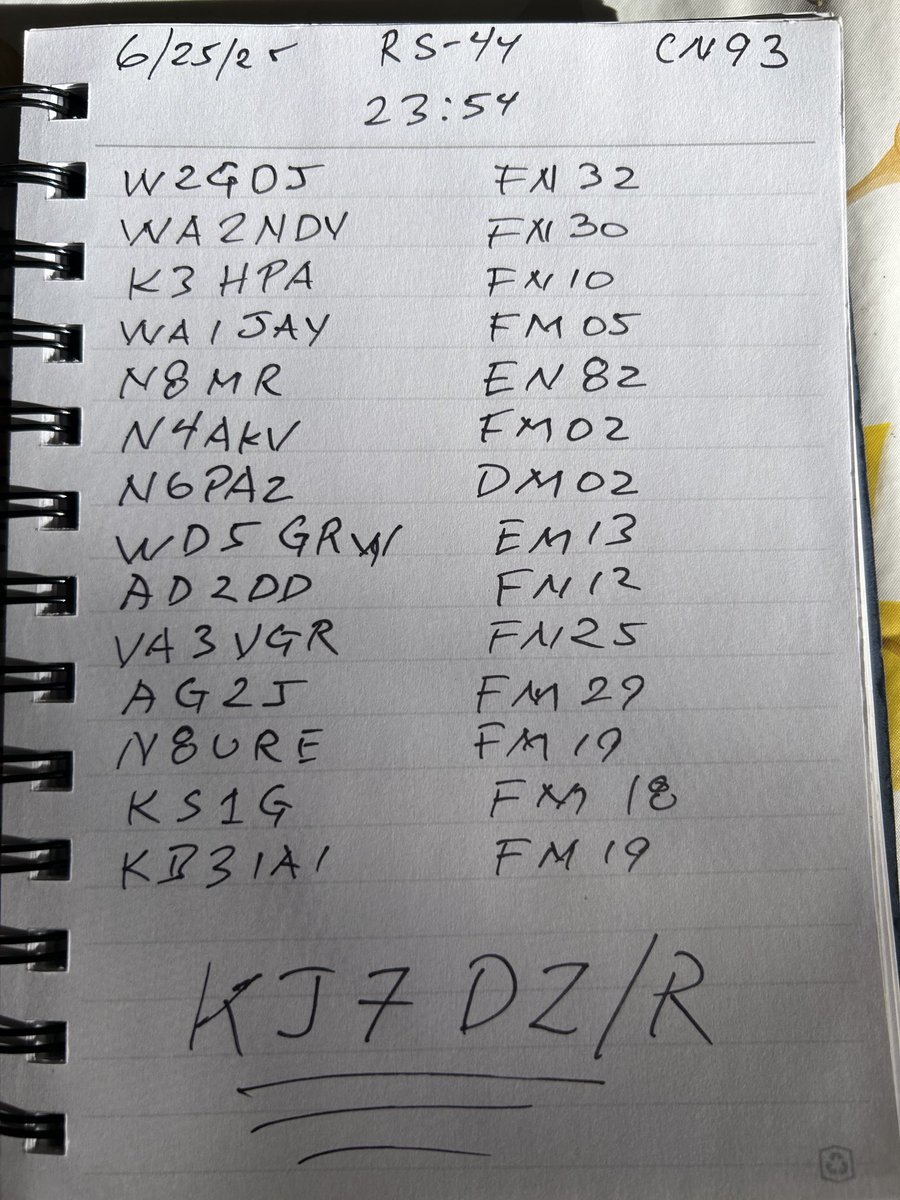 6/25/25 RS-44 CN93
23:54
W2GDJ FN32
WA2NDV FN30
K3HPA FN10
WA1JAY FM05
N8MR EN82
N4AKV FM02
N6PAZ DM02
WD5GRW EM13
AD2DD FN12
VA3VGR FN25
AG2J FM29
N8URE FM19
KS1G FM18
KB3IAI FM19
KJ7DZ/R